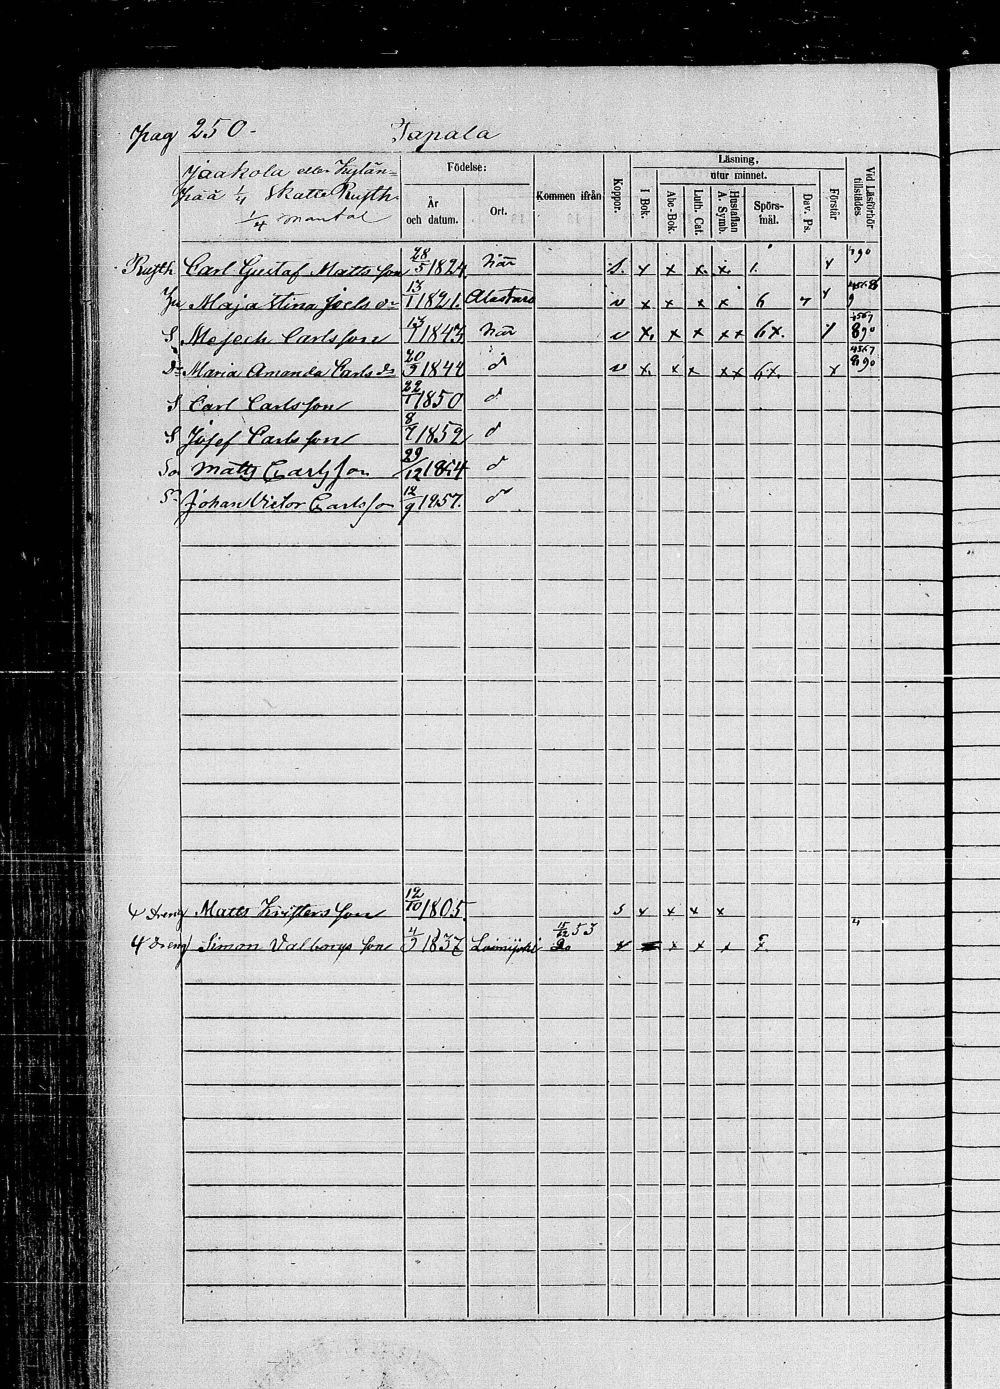 pag 250.
Tapala
Jaakola eller Kylän=
pää 1/4 Skatte Rusth.
1/4 mantal
Födelse:
År och datum.
Ort.
Kommen ifrån
Koppor.
Läsning,
utur minnet.
I Bok.
Abc-Bok
Luth. Cat.
Hustaflan A. Symb.
Spörs-mål.
Dav. Ps.
Förstår
Vid Läsförhör tillstädes
Rusth. Carl Gustaf Mattsson 28/5 1824 här s. x x x. x. 1. x 90
Hu Maja Stina Joels dr 13/1 1821. Alastaro v x x x x 6 x 9
S Mesech Carlsson 13/7 1843 här v x. x x xx 6x. 4567 890
Dr Maria Amanda Carls dr 1844 d v x. x x xx 6x. x 4567 890
S Carl Carlsson 22/1 1850 d
S Josef Carlsson 8/7 1852 d
So Matts Carlsson 29/12 1854 d
Sn Johan Victor Carlsson 12/9 1857. d
Dreng Matts Kristersson 12/10 1805. s x x x x
Dreng Simon Valborgs son 1837 Loimijoki 15/12 53 v x x x